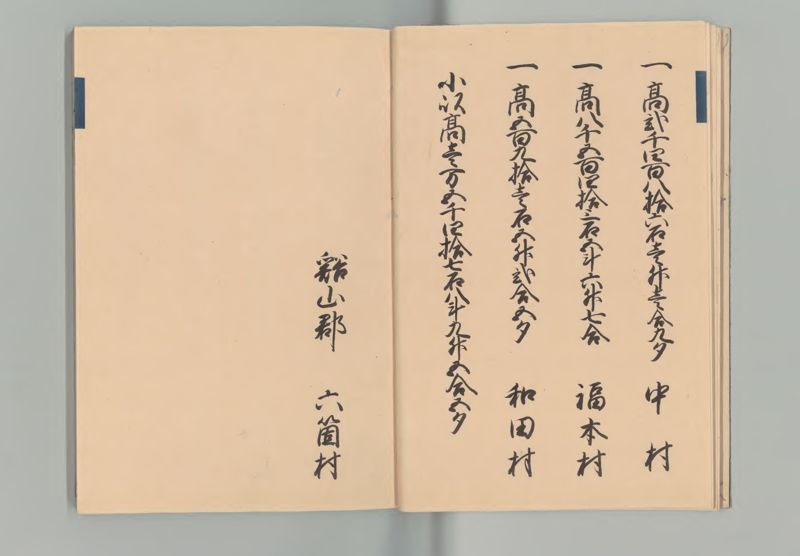 一高弐千四百八拾六石壱升壱合九夕 中村
一高八千五百四拾三石五斗六升七合 福本村
一高五百九拾壱石五升弐合五夕 和田村
小以高壱万五千四拾七石八斗九升五合五夕
谿山郡 六箇村